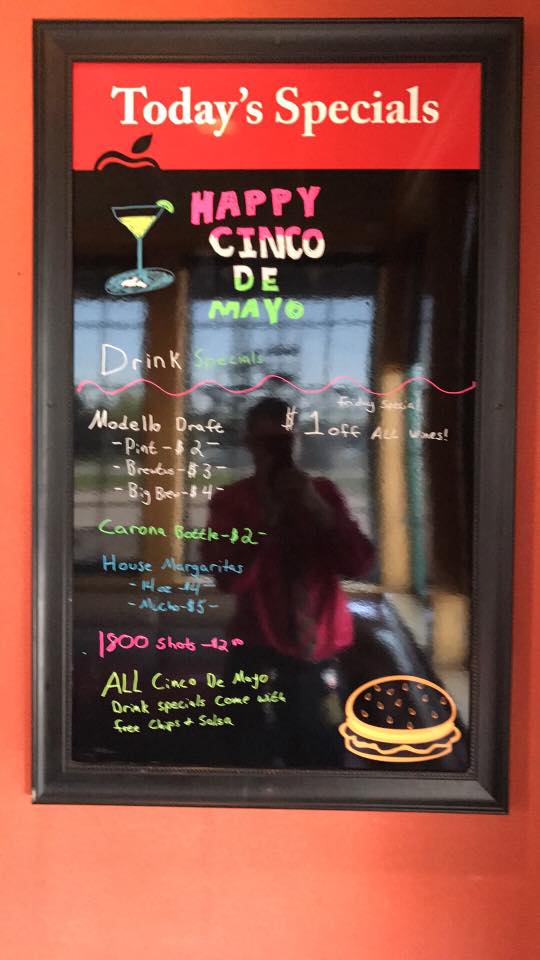 Today's Specials
HAPPY
CINCO
DE
MAYO
Drink Specials
Modello Draft
- Pint - $2 -
- Brewtus - $3 -
- Big Brew - $4 -
Friday Special
$1 off ALL wines!
Carona Bottle - $2 -
House Margaritas
- 14oz - $4 -
- Mucho - $5 -
1800 Shots - $2⁰⁰
ALL Cinco De Mayo
Drink specials come with
free Chips + Salsa